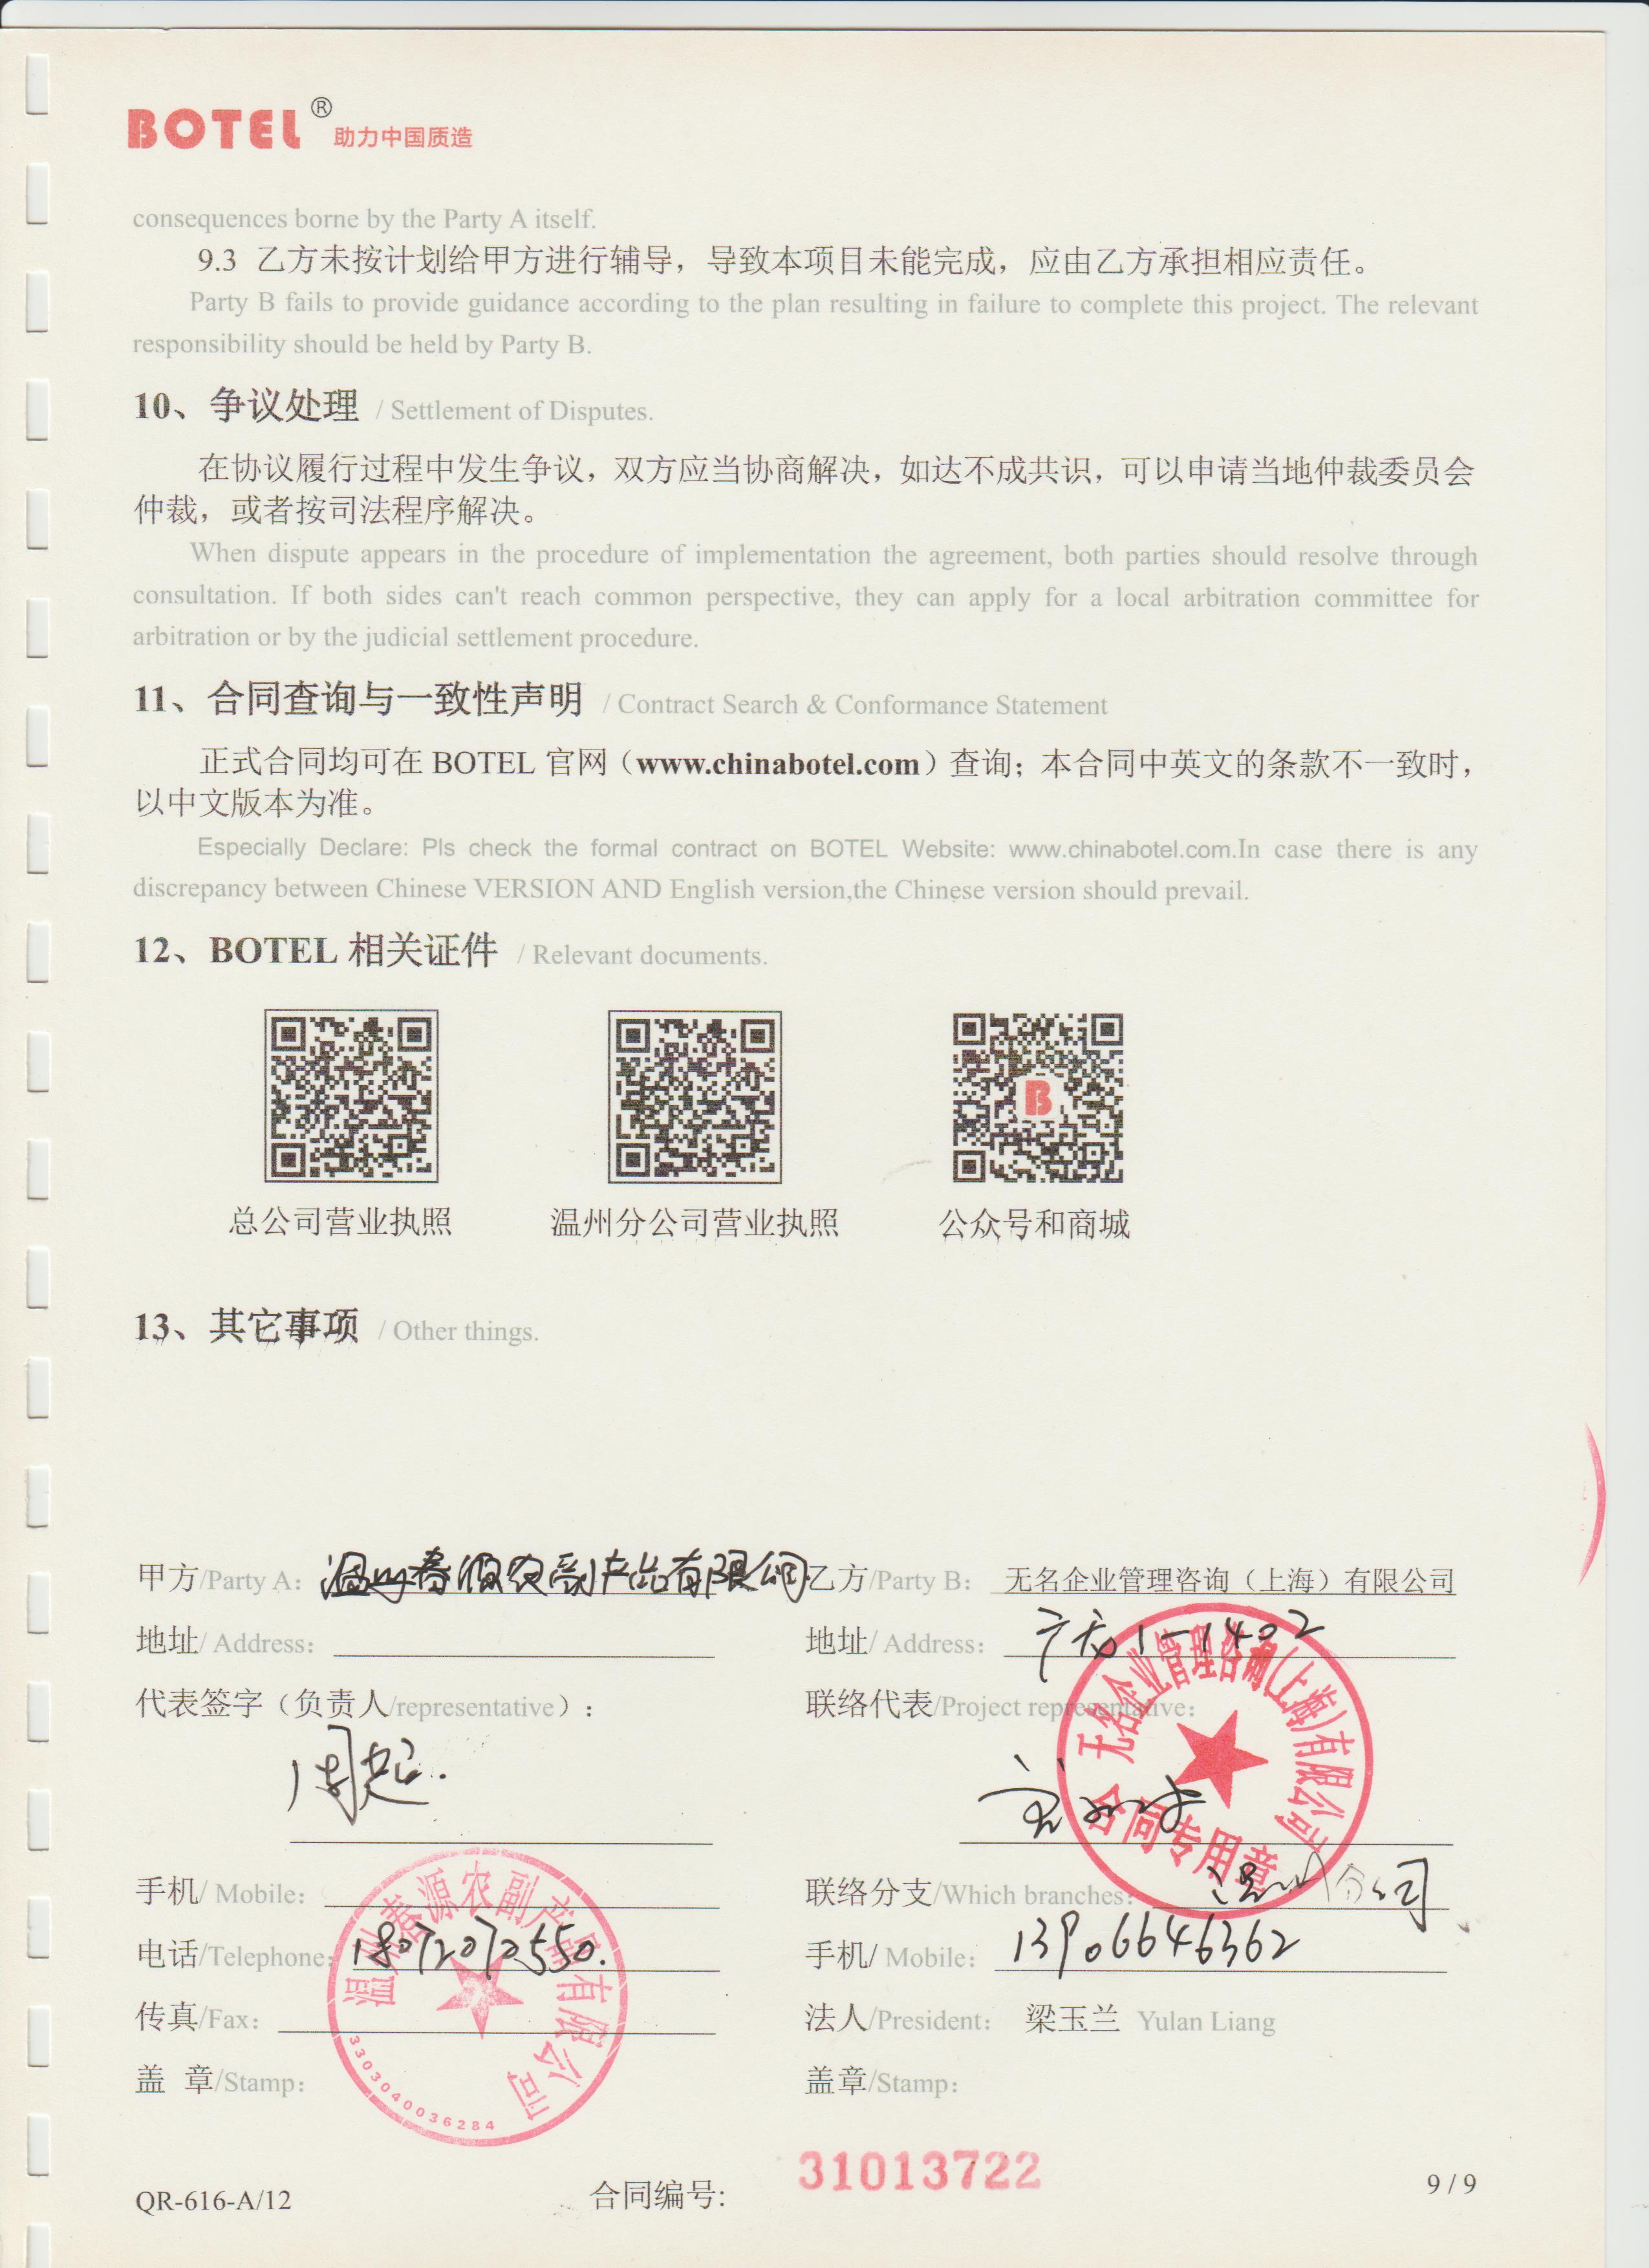 BOTEL® 助力中国质造
consequences borne by the Party A itself.
9.3 乙方未按计划给甲方进行辅导，导致本项目未能完成，应由乙方承担相应责任。
Party B fails to provide guidance according to the plan resulting in failure to complete this project. The relevant
responsibility should be held by Party B.
10、争议处理 / Settlement of Disputes.
在协议履行过程中发生争议，双方应当协商解决，如达不成共识，可以申请当地仲裁委员会
仲裁，或者按司法程序解决。
When dispute appears in the procedure of implementation the agreement, both parties should resolve through
consultation. If both sides can't reach common perspective, they can apply for a local arbitration committee for
arbitration or by the judicial settlement procedure.
11、合同查询与一致性声明 / Contract Search & Conformance Statement
正式合同均可在 BOTEL 官网（www.chinabotel.com）查询；本合同中英文的条款不一致时，
以中文版本为准。
Especially Declare: Pls check the formal contract on BOTEL Website: www.chinabotel.com.In case there is any
discrepancy between Chinese VERSION AND English version,the Chinese version should prevail.
12、BOTEL 相关证件 / Relevant documents.
B
总公司营业执照 温州分公司营业执照 公众号和商城
13、其它事项 / Other things.
甲方/Party A: 农副产品有限公司 乙方/Party B: 无名企业管理咨询（上海）有限公司
地址/ Address: 地址/ Address: 1-1402
代表签字（负责人/representative）: 联络代表/Project representative:
周起.
无名企业管理咨询(上海)有限公司
合同专用章
手机/ Mobile: 联络分支/Which branches: 温州分公司
电话/Telephone: 18072070550. 手机/ Mobile: 13906646362
传真/Fax: 法人/President: 梁玉兰 Yulan Liang
源农副产品有限公司
3303040036284
盖 章/Stamp: 盖章/Stamp:
QR-616-A/12 合同编号: 31013722 9 / 9